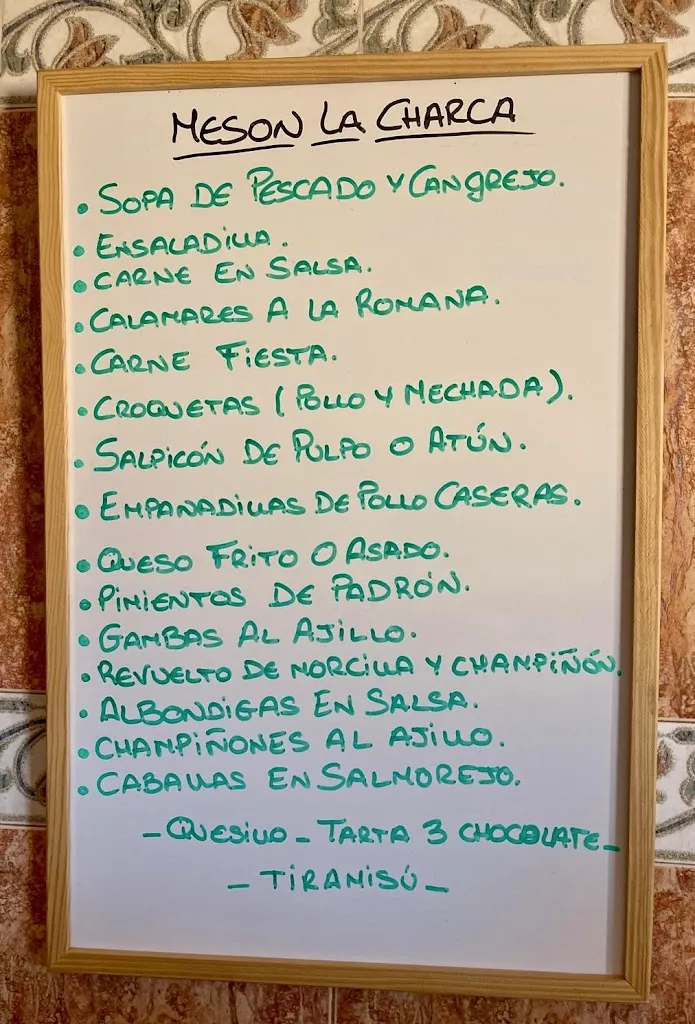 MESON LA CHARCA
• SOPA DE PESCADO Y CANGREJO.
• ENSALADILLA.
• CARNE EN SALSA.
• CALAMARES A LA ROMANA.
• CARNE FIESTA.
• CROQUETAS (POLLO Y MECHADA).
• SALPICÓN DE PULPO O ATÚN.
• EMPANADILLAS DE POLLO CASERAS.
• QUESO FRITO O ASADO.
• PIMIENTOS DE PADRÓN.
• GAMBAS AL AJILLO.
• REVUELTO DE MORCILLA Y CHAMPIÑÓN.
• ALBONDIGAS EN SALSA.
• CHAMPIÑONES AL AJILLO.
• CABALLAS EN SALMOREJO.
- QUESILLO - TARTA 3 CHOCOLATE -
- TIRAMISÚ -